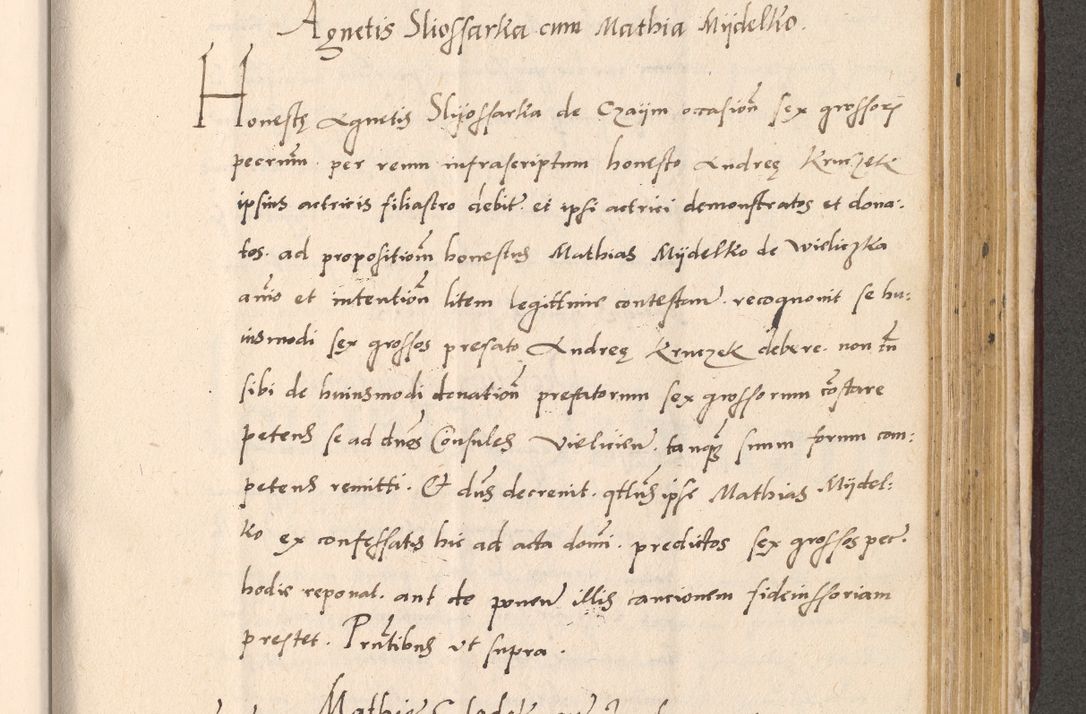 Agnetis Sliossarka cum Mathia Mÿdelko.
Honestę Agnetis Slÿossarka de Czaÿm occasion sex grossorj
pecrum. per reum infrascriptum honesto Andreę Kruczek
ipsius actricis filiastro debit. et ipsi actrici demonstratos et dona:
tos. ad proposition honestus Mathias Mÿdelko de Wieliczka
animo et intention litem legittime contestan. recognovit se hu:
iusmodi sex grossos prefato Andreę Kruczek debere. non tn
sibi de huiusmodi donation prefatorum sex grossorum costare
petens se ad dnos Consules Vielicien. tanq suum forum com:
petens remitti. Et dns decrevit. qtus ipse Mathias Mÿdel:
ko ex confessatis hic ad acta domi. predictos sex grossos pec.
hodie reponat. aut de ponen illis caucionem fideiussoriam
prestet. Pntibus ut supra.
Mathie